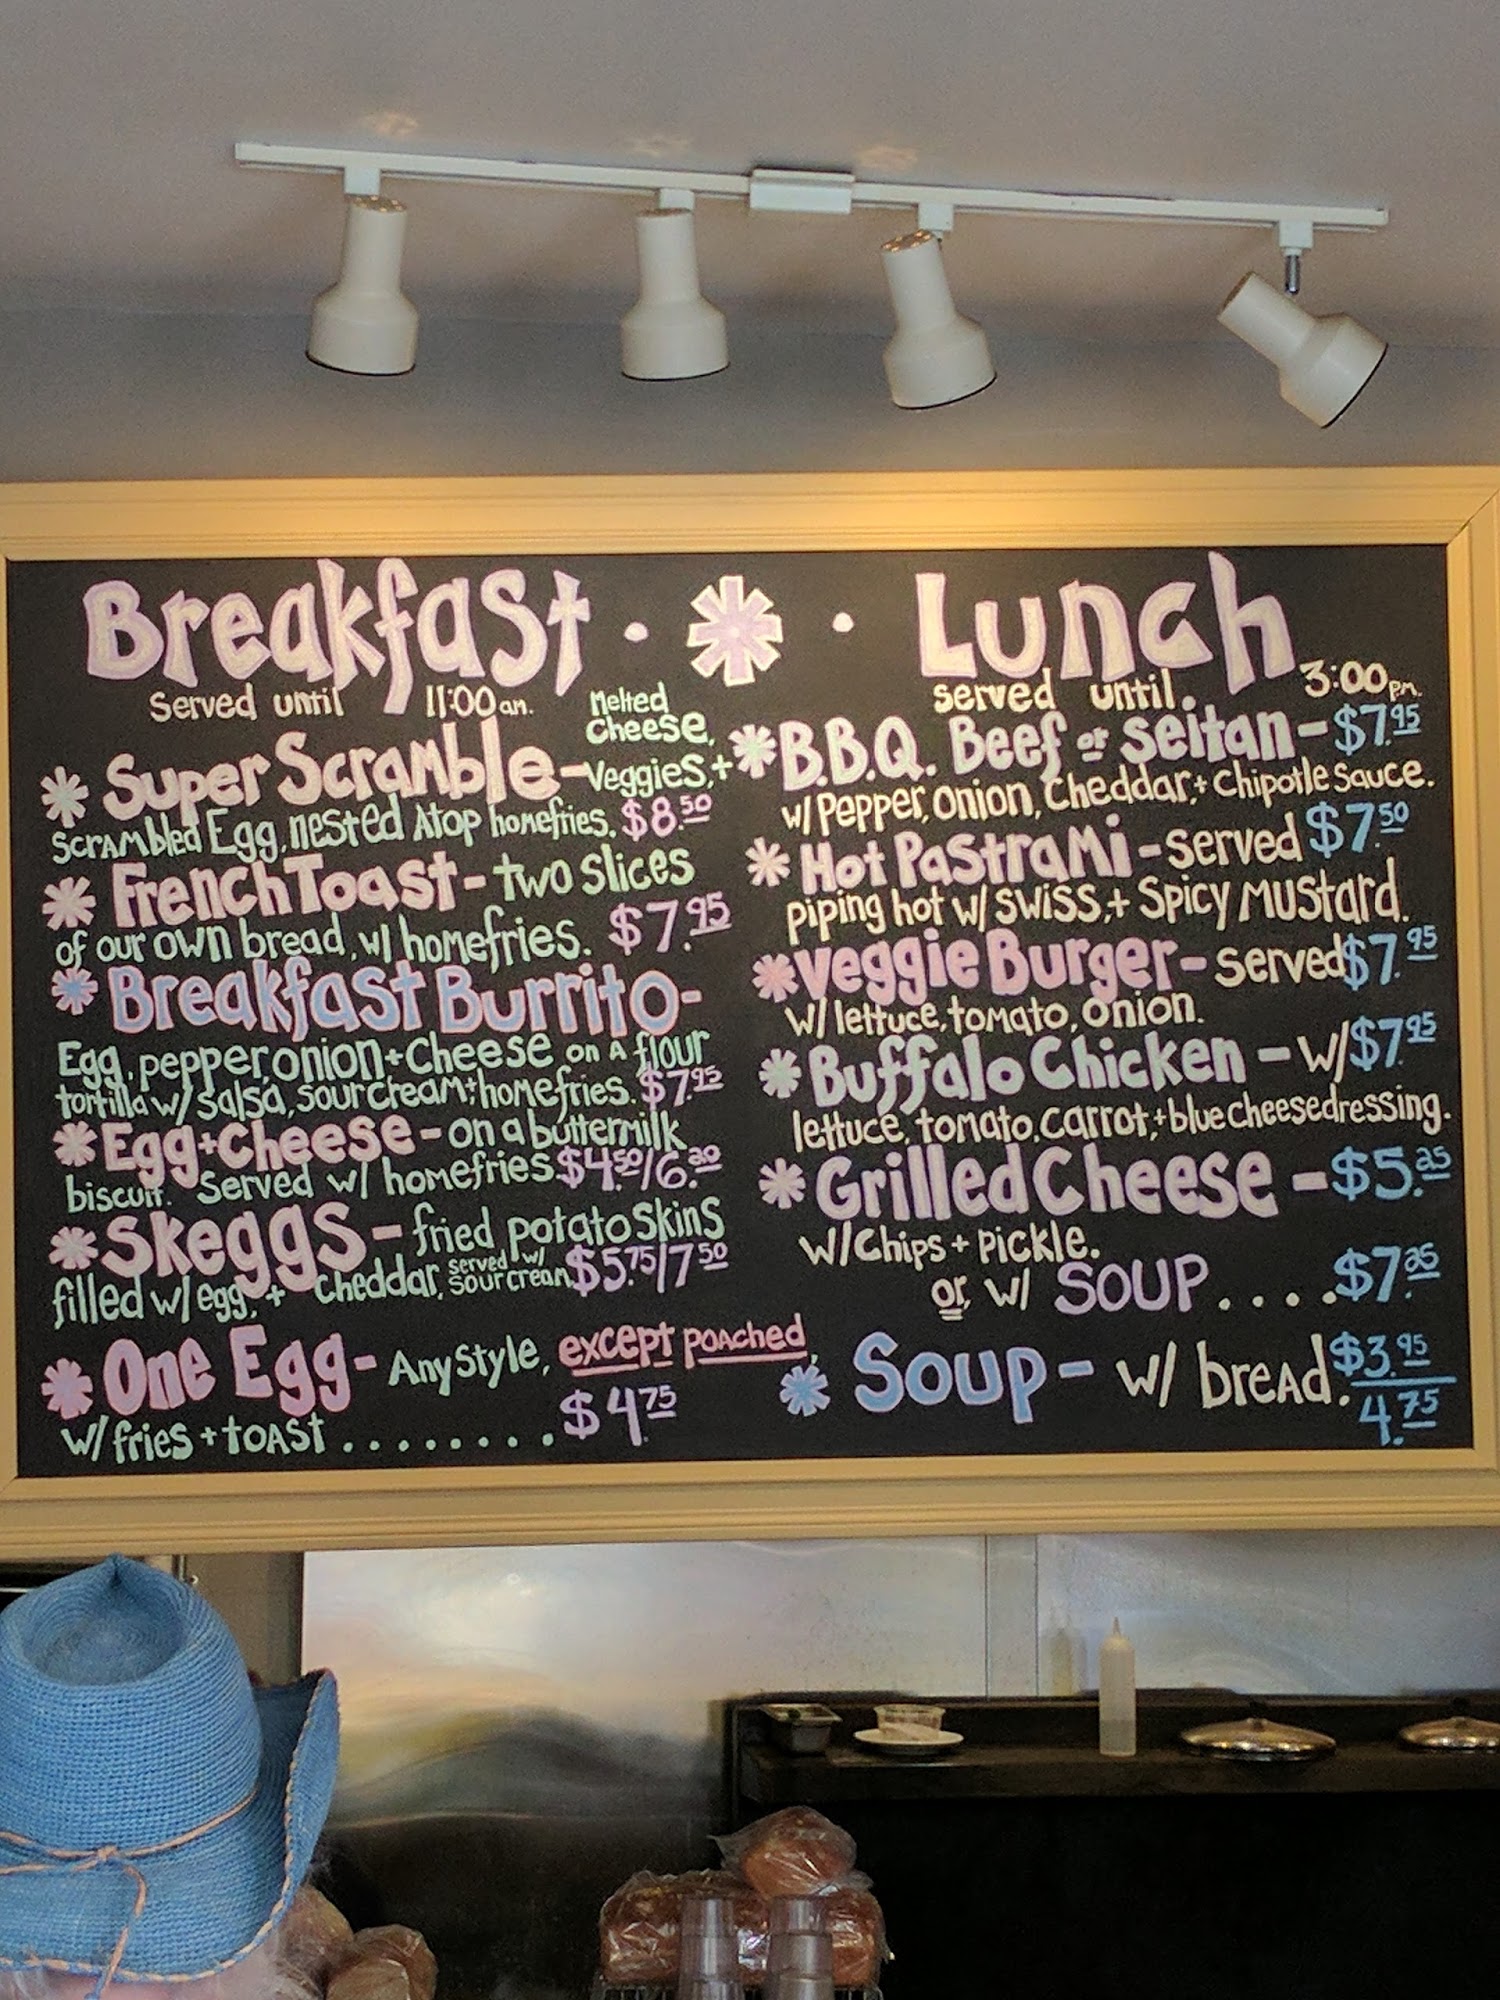 Breakfast · * · Lunch
Served until 11:00 am.
Super Scramble - Melted Cheese, Veggies, +
Scrambled Egg, nested Atop homefries. $8.50
French Toast - two slices
of our own bread, w/ homefries. $7.95
Breakfast Burrito -
Egg, pepper, onion + Cheese on a flour
tortilla w/ salsa, sour cream + homefries. $7.95
Egg + Cheese - on a buttermilk
biscuit. Served w/ homefries $4.50/6.20
Skeggs - fried potato skins
filled w/ egg, + cheddar, served w/ sour cream $5.75/7.50
One Egg - Any Style, except poached,
w/ fries + toast ......... $4.75
served until 3:00 pm.
B.B.Q. Beef or Seitan - $7.95
w/ Pepper, Onion, Cheddar, + Chipotle Sauce.
Hot Pastrami - Served $7.50
piping hot w/ Swiss, + Spicy Mustard.
Veggie Burger - Served $7.95
w/ lettuce, tomato, onion.
Buffalo Chicken - w/ $7.95
lettuce, tomato, carrot, + blue cheese dressing.
Grilled Cheese - $5.25
w/ Chips + Pickle.
or, w/ Soup .... $7.25
Soup - w/ bread. $3.95
4.75